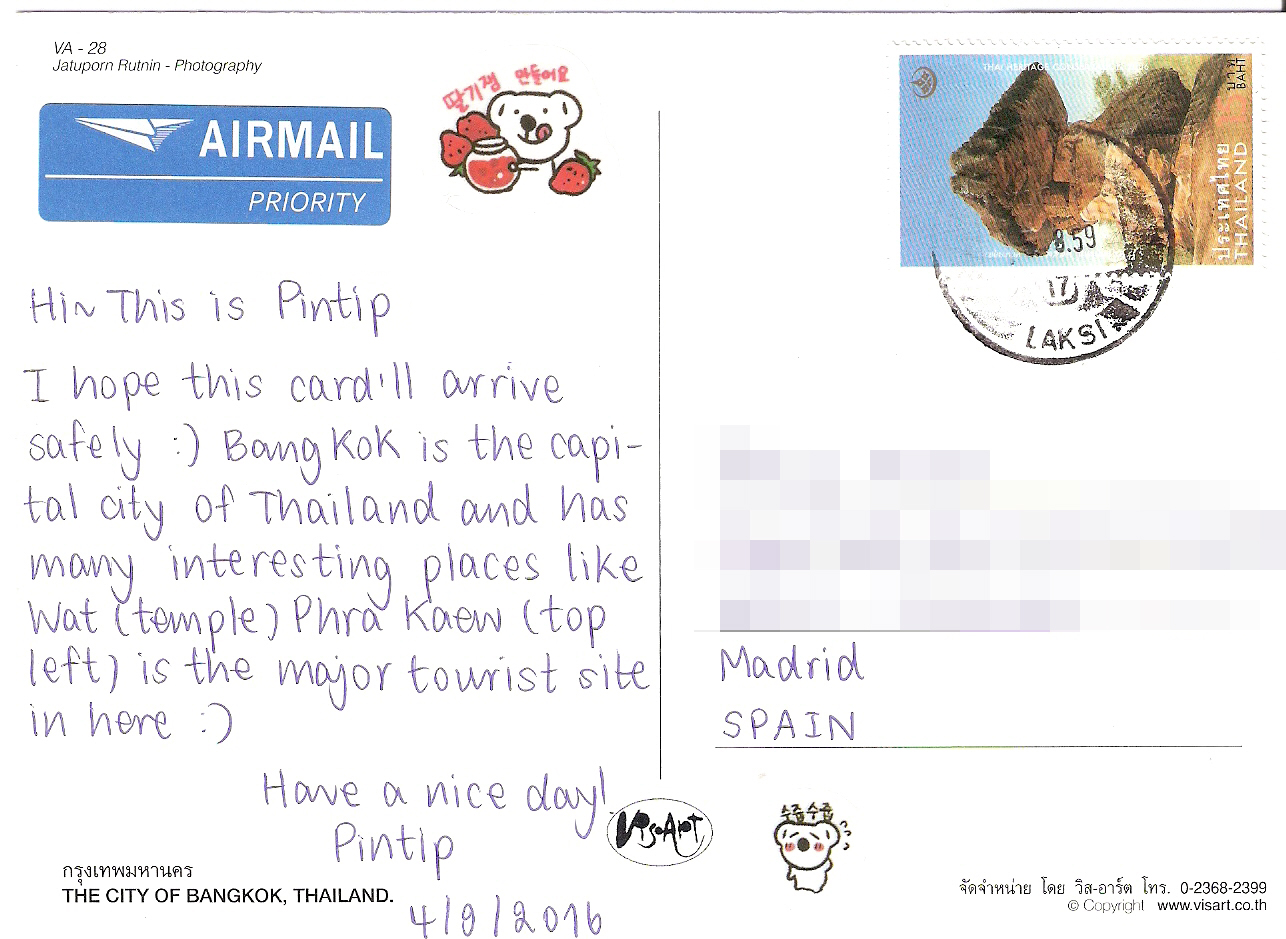 VA - 28
Jatuporn Rutnin - Photography
AIRMAIL
PRIORITY
딸기잼 만들어요
Hi~ This is Pintip
I hope this card'll arrive
safely :) Bangkok is the capi-
tal city of Thailand and has
many interesting places like
Wat (temple) Phra Kaew (top
left) is the major tourist site
in here :)
Have a nice day!
Pintip
4/9/2016
กรุงเทพมหานคร
THE CITY OF BANGKOK, THAILAND.
VisArt
บาท
BAHT
ประเทศไทย
THAILAND
8.59
17
LAKSI
Madrid
SPAIN
수줍수줍
จัดจำหน่าย โดย วิส-อาร์ต โทร. 0-2368-2399
© Copyright www.visart.co.th